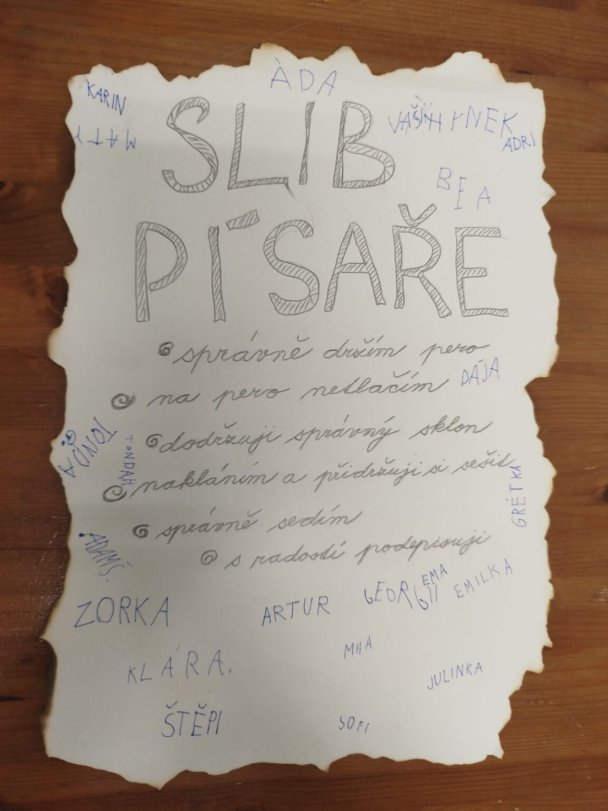 KARIN
MATY
ÀDA
HYNEK
ADRI
BEA
SLIB
PÍSAŘE
správně držím pero
na pero netlačím
DÁJA
dodržuji správný sklon
nakláním a přidržuji si sešit
správně sedím
s radostí podepisuji
TONDA
TONDAH
GRÉTKA
ADAMŠ.
ZORKA
ARTUR
GEORGII
EMA
EMILKA
KLÁRA.
MIA
JULINKA
ŠTĚPI
SOFI